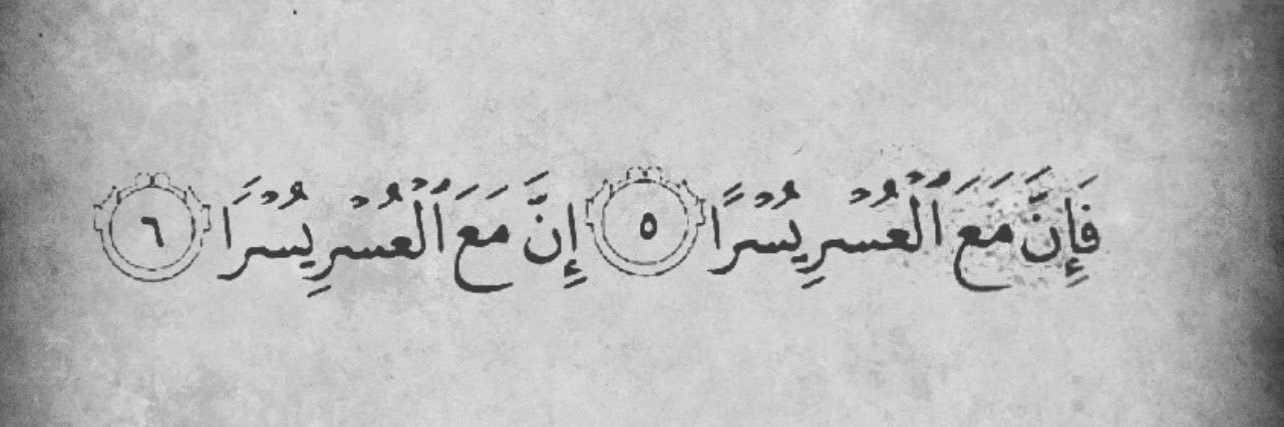 فَإِنَّ مَعَ ٱلْعُسْرِ يُسْرًا ٥ إِنَّ مَعَ ٱلْعُسْرِ يُسْرَا ٦